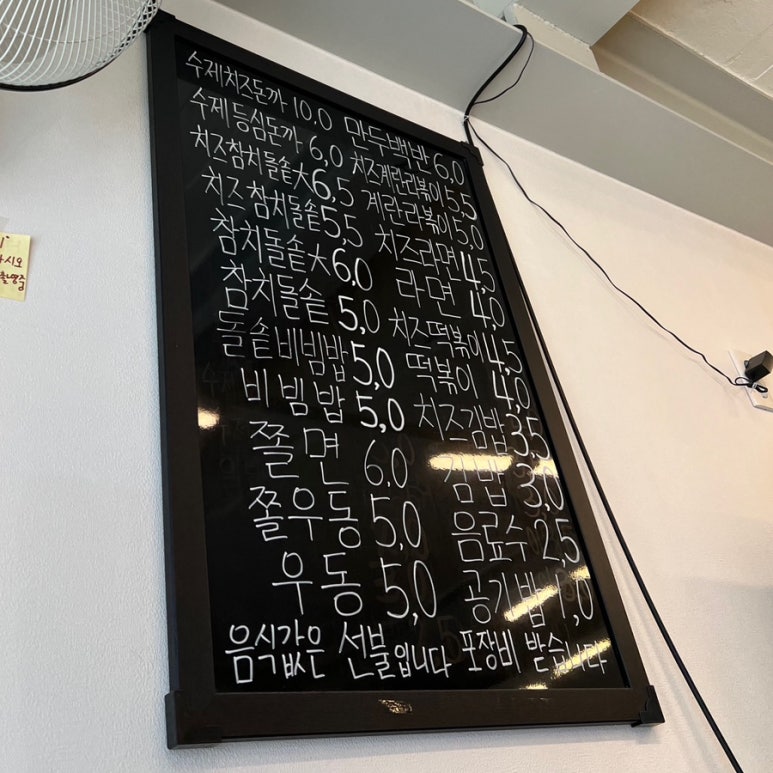 수제치즈돈까 10.0
수제 등심돈까 6,0
치즈참치돌솥大 6,5
치즈 참치돌솥 5,5
참치돌솥大 6,0
참치돌솥 5,0
돌솥비빔밥 5,0
비빔밥 5,0
쫄면 6.0
쫄우동 5,0
우동 5,0
만두백반 6,0
치즈계란라볶이 5,5
계란라볶이 5,0
치즈라면 4,5
라면 4,0
치즈떡볶이 4,5
떡볶이 4,0
치즈김밥 3,5
김밥 3,0
음료수 2,5
공기밥 1,0
음식값은 선불입니다 포장비 받습니다
시오